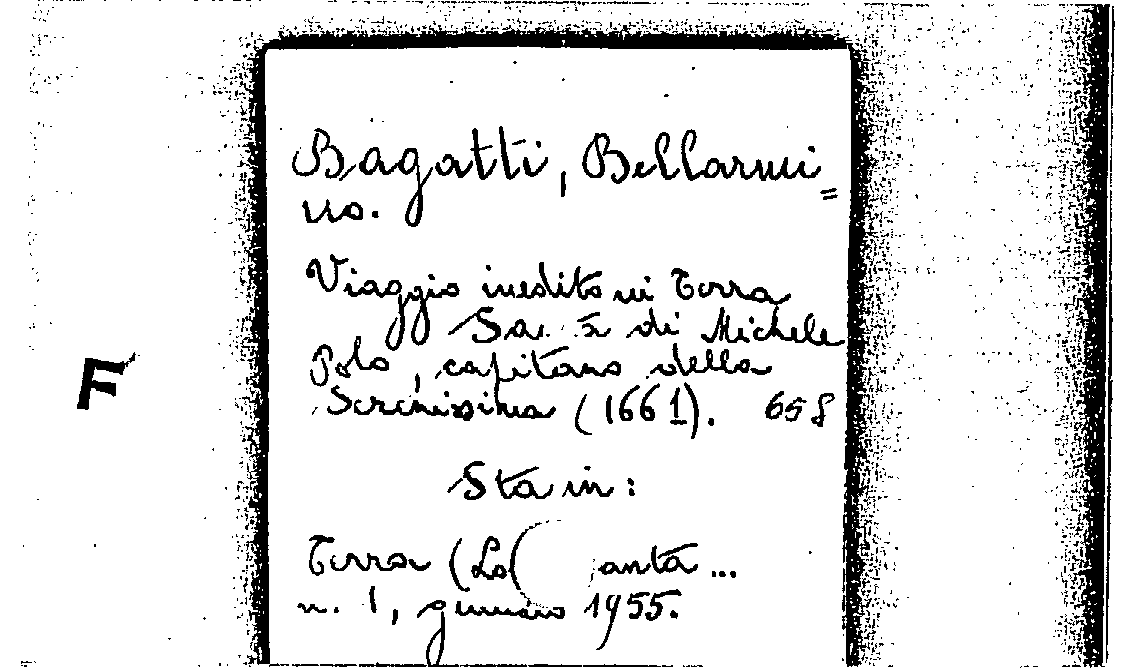 F
Bagatti, Bellarmi=
no.
Viaggio inedito in Terra
di Michele
Polo, capitano della
Serenissima (1661). 658
Sta in:
Terra (La
n. 1, gennaio 1955.